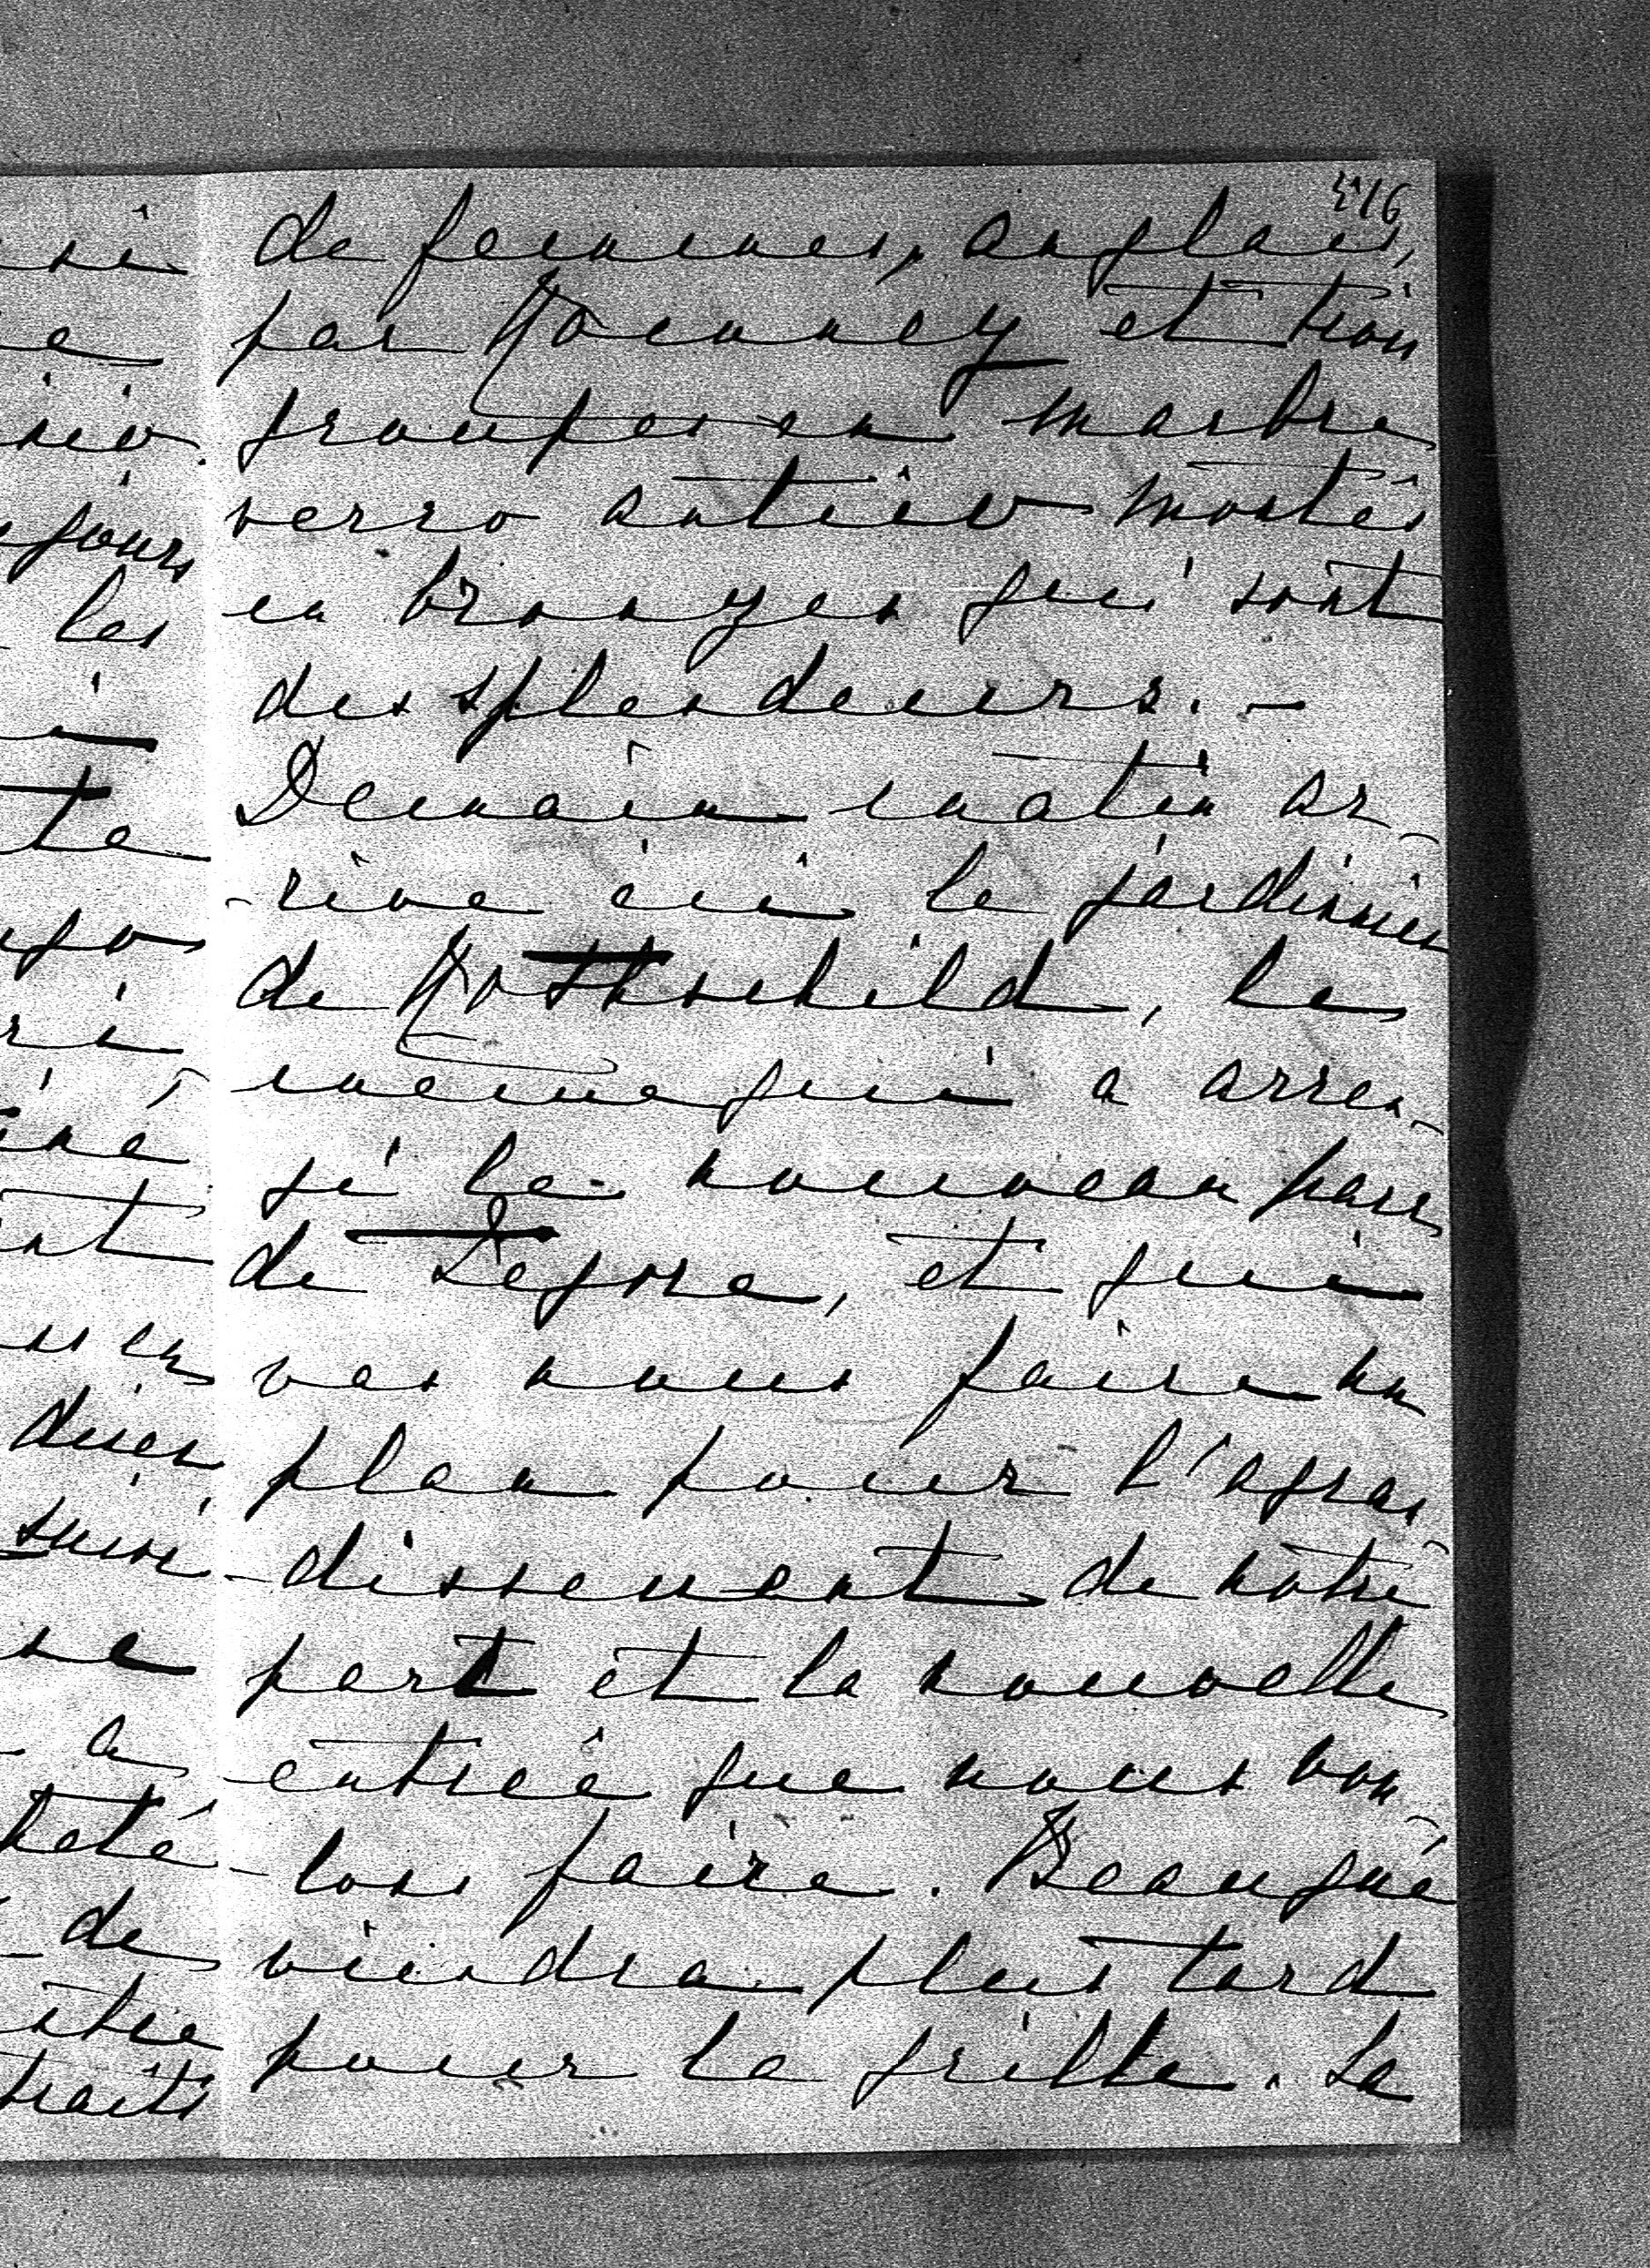 416
de femmes, anglais,
par Romney et trois
groupes en marbre
verro antico montés
en bronzes qui sont
des splendeurs. —
Demain matin ar-
-rive ici le jardinier
de Rothschild, le
même qui a arran-
gé le nouveau parc
de Degore, et qui
vas nous faire un
plan pour l'agran-
-dissement de notre
parc et la nouvelle
entrée que nous vou-
-lons faire. Beaugné
viendra plus tard
pour la grille. Le
jours
les
suivi
de
traits